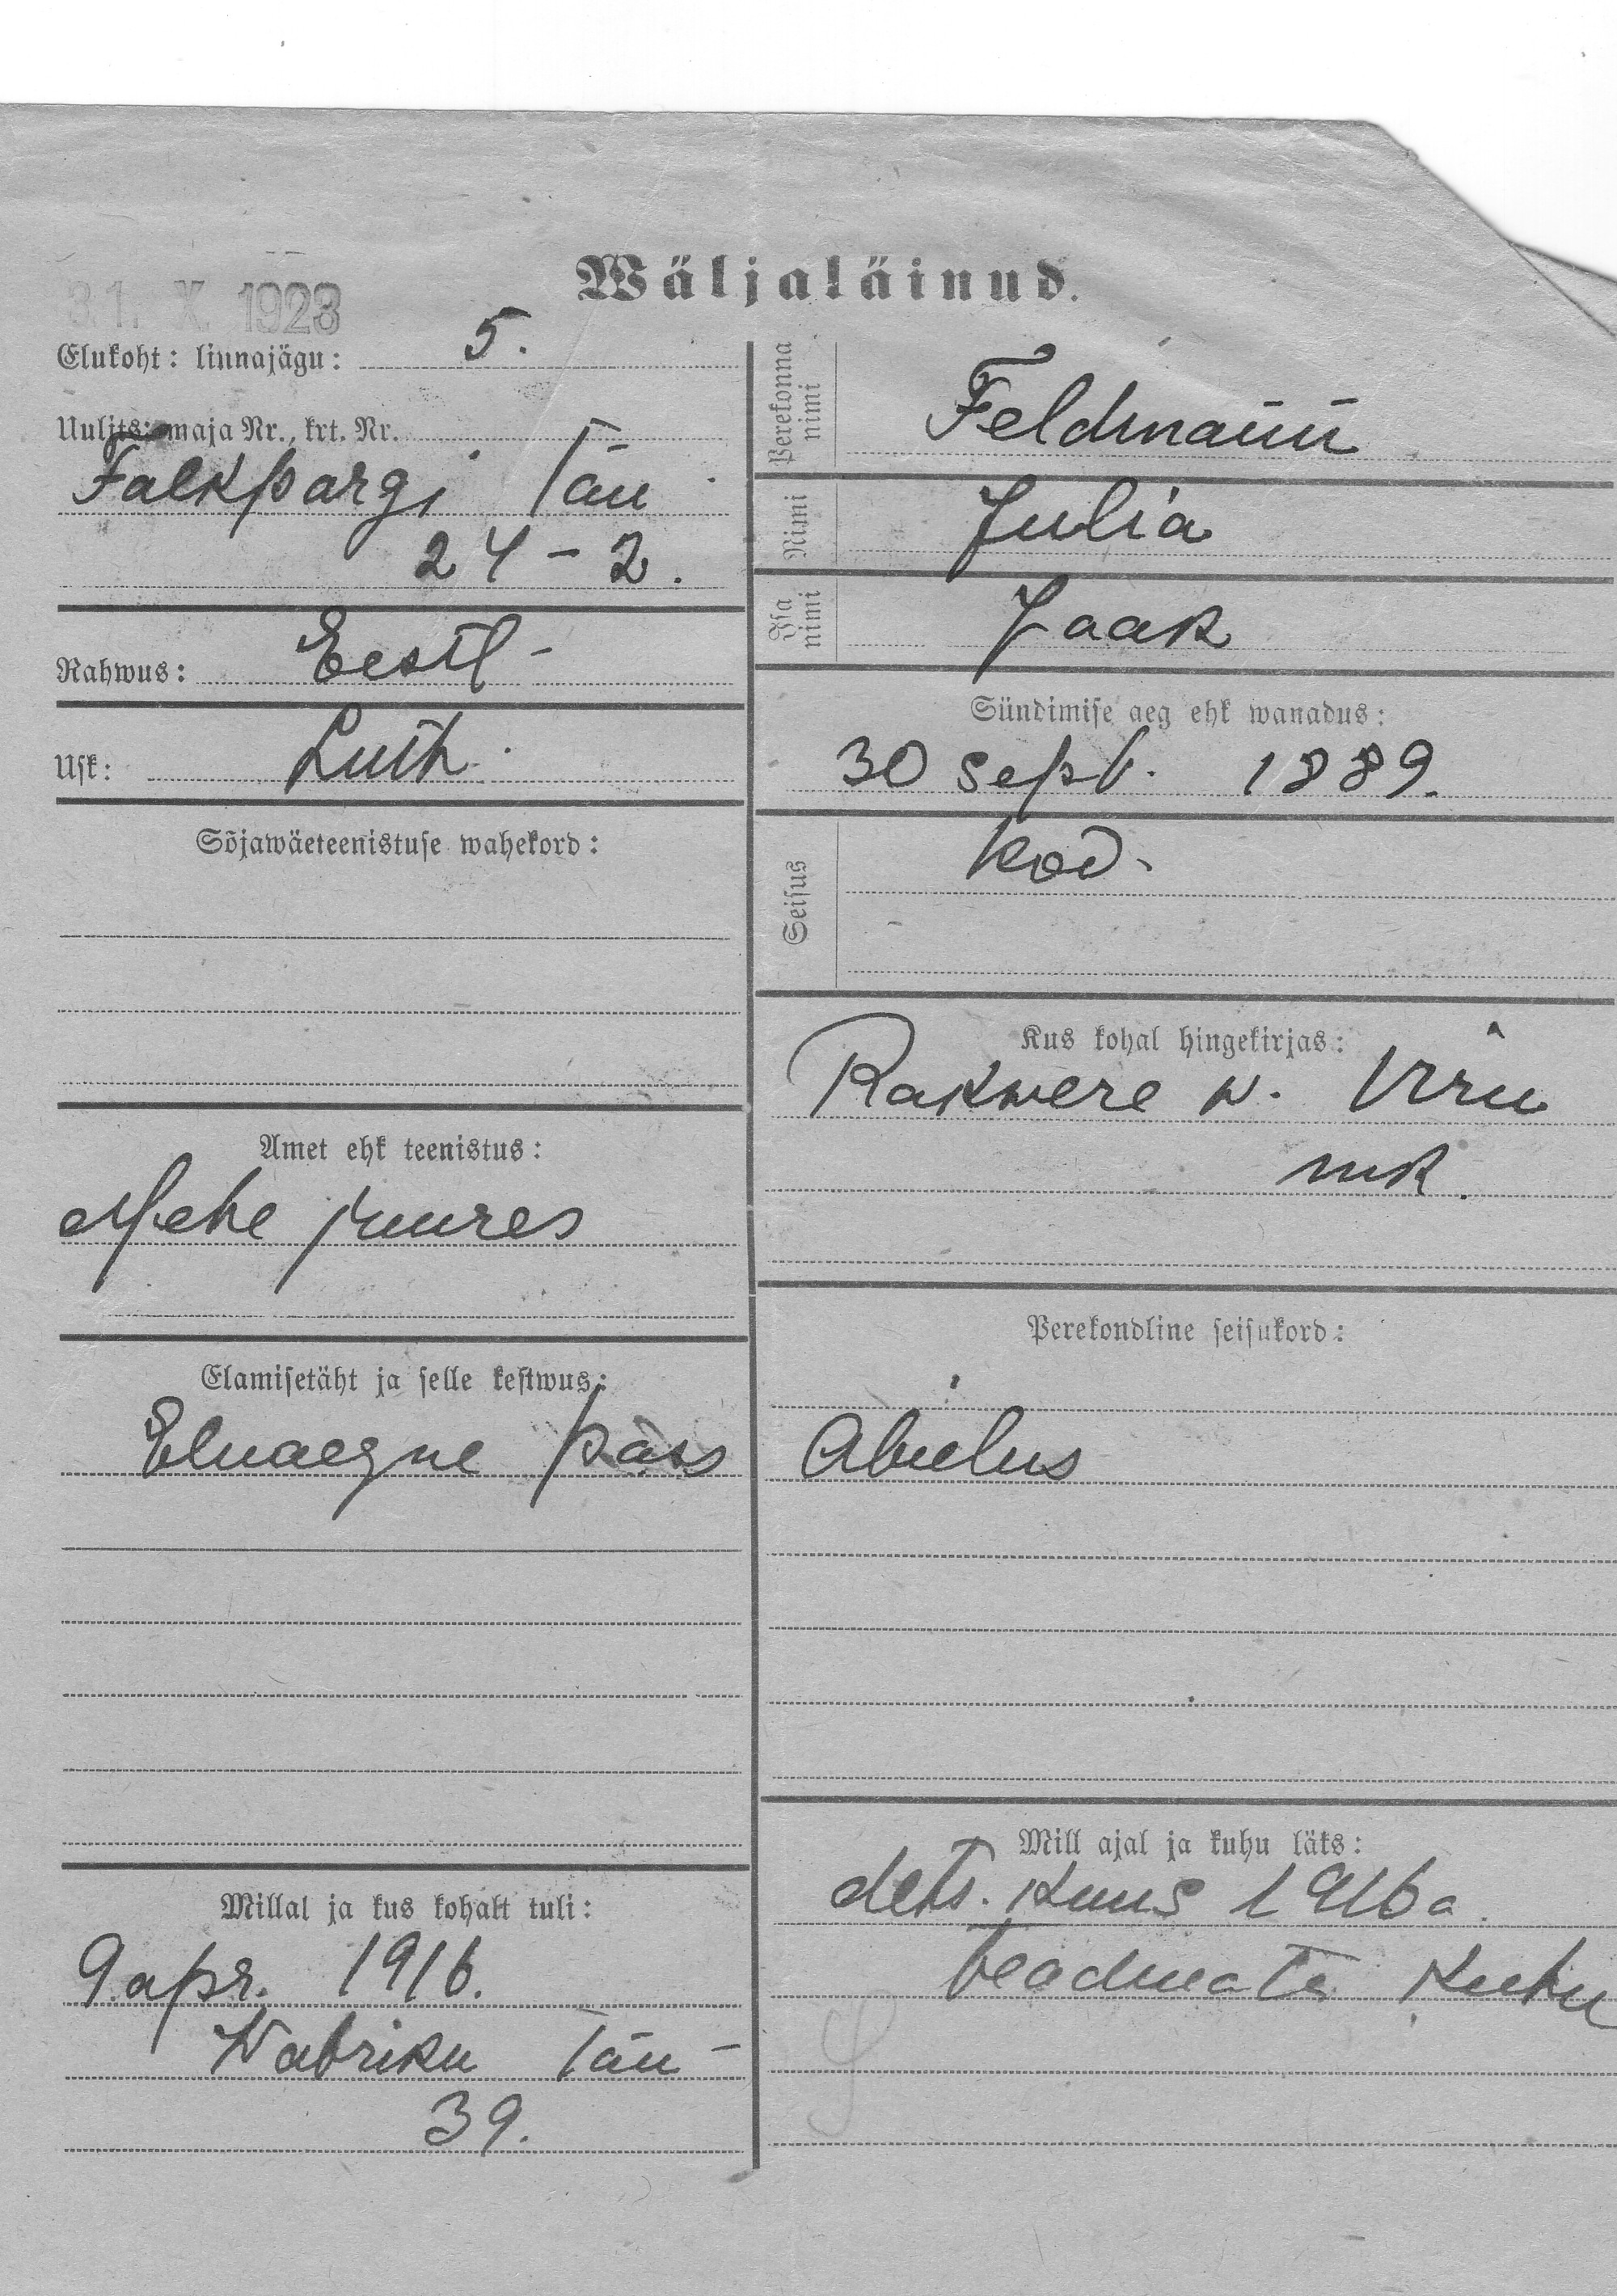 Wäljaläinud.
31. X. 1923
Elukoht: linnajägu: 5.
Uulits, maja Nr., krt. Nr.
Falkpargi Tän
24-2.
Rahwus: Eestl-
Usk: Luth.
Sõjawäeteenistuse wahekord:
Amet ehk teenistus:
Mehe juures
Elamisetäht ja selle kestwus:
Eluaegne pass
Millal ja kus kohalt tuli:
9 apr. 1916.
Wabriku Tän-
39.
Perekonna
nimi
Feldmann
Nimi
Julia
Isa
nimi
Jaak
Sündimise aeg ehk wanadus:
30 sept. 1889.
Seisus
kod-
Kus kohal hingekirjas:
Rakwere w. Viru
mk.
Perekondline seisukord:
Abielus
Mill ajal ja kuhu läks:
dets. kuus 1916 a.
teadmata kuhu